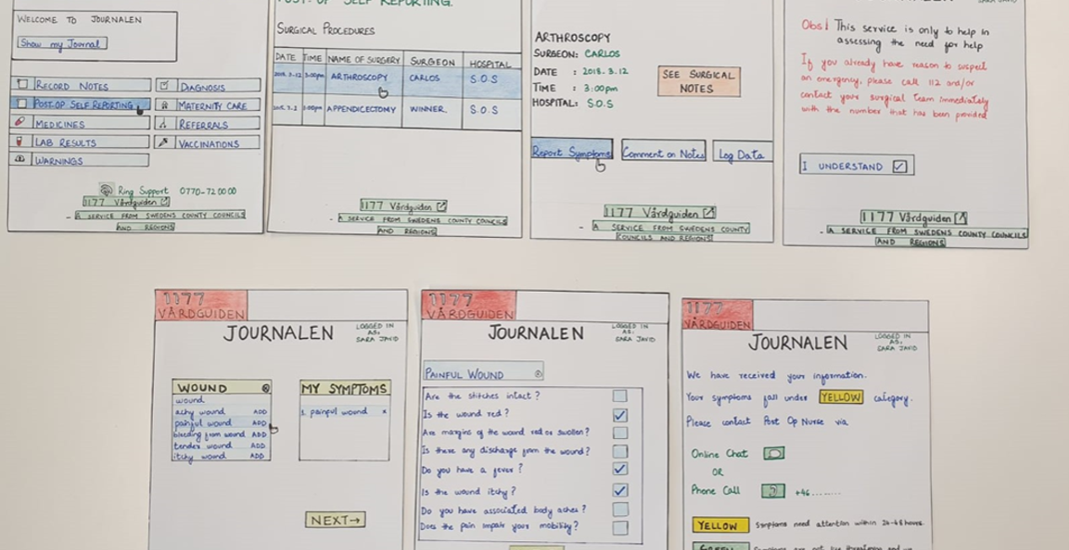 WELCOME TO JOURNALEN
Show my Journal
RECORD NOTES
DIAGNOSIS
POST-OP SELF REPORTING
MATERNITY CARE
MEDICINES
REFERRALS
LAB RESULTS
VACCINATIONS
WARNINGS
Ring Support 0770-72 00 00
1177 Vårdguiden
- A SERVICE FROM SWEDENS COUNTY COUNCILS
AND REGIONS
POST-OP SELF REPORTING.
SURGICAL PROCEDURES
DATE TIME NAME OF SURGERY SURGEON HOSPITAL
2018.3.12 3:00pm ARTHROSCOPY CARLOS S.O.S
APPENDICECTOMY WINNER. S.O.S
1177 Vårdguiden
- A SERVICE FROM SWEDENS COUNTY COUNCILS
AND REGIONS
ARTHROSCOPY
SURGEON: CARLOS
DATE : 2018.3.12
TIME : 3:00pm
HOSPITAL: S.O.S
SEE SURGICAL
NOTES
Report Symptoms
Comment on Notes
Log Data
1177 Vårdguiden
- A SERVICE FROM SWEDENS COUNTY
KOUNCILS AND REGIONS
SARA JAVID
Obs! This service is only to help in
assessing the need for help
If you already have reason to suspect
an emergency, please call 112 and/or
contact your surgical team immediately
with the number that has been provided
I UNDERSTAND
1177 Vårdguiden
- A SERVICE FROM SWEDENS COUNTY COUNCILS
AND REGIONS
1177
VÅRDGUIDEN
JOURNALEN
LOGGED IN
AS:
SARA JAVID
WOUND
wound
achy wound ADD
painful wound ADD
bleeding from wound ADD
tender wound ADD
itchy wound ADD
MY SYMPTOMS
1. painful wound x
NEXT→
1177
VÅRDGUIDEN
JOURNALEN
LOGGED IN
AS:
SARA JAVID
PAINFUL WOUND
Are the stitches intact?
Is the wound red?
Are margins of the wound red or swollen?
Is there any discharge from the wound?
Do you have a fever?
Is the wound itchy?
Do you have associated body aches?
Does the pain impair your mobility?
1177
VÅRDGUIDEN
JOURNALEN
LOGGED IN
AS:
SARA JAVID
We have received your information.
Your symptoms fall under YELLOW category.
Please contact Post Op Nurse via
Online Chat
OR
Phone Call +46........
YELLOW Symptoms need attention within 24-48 hours.